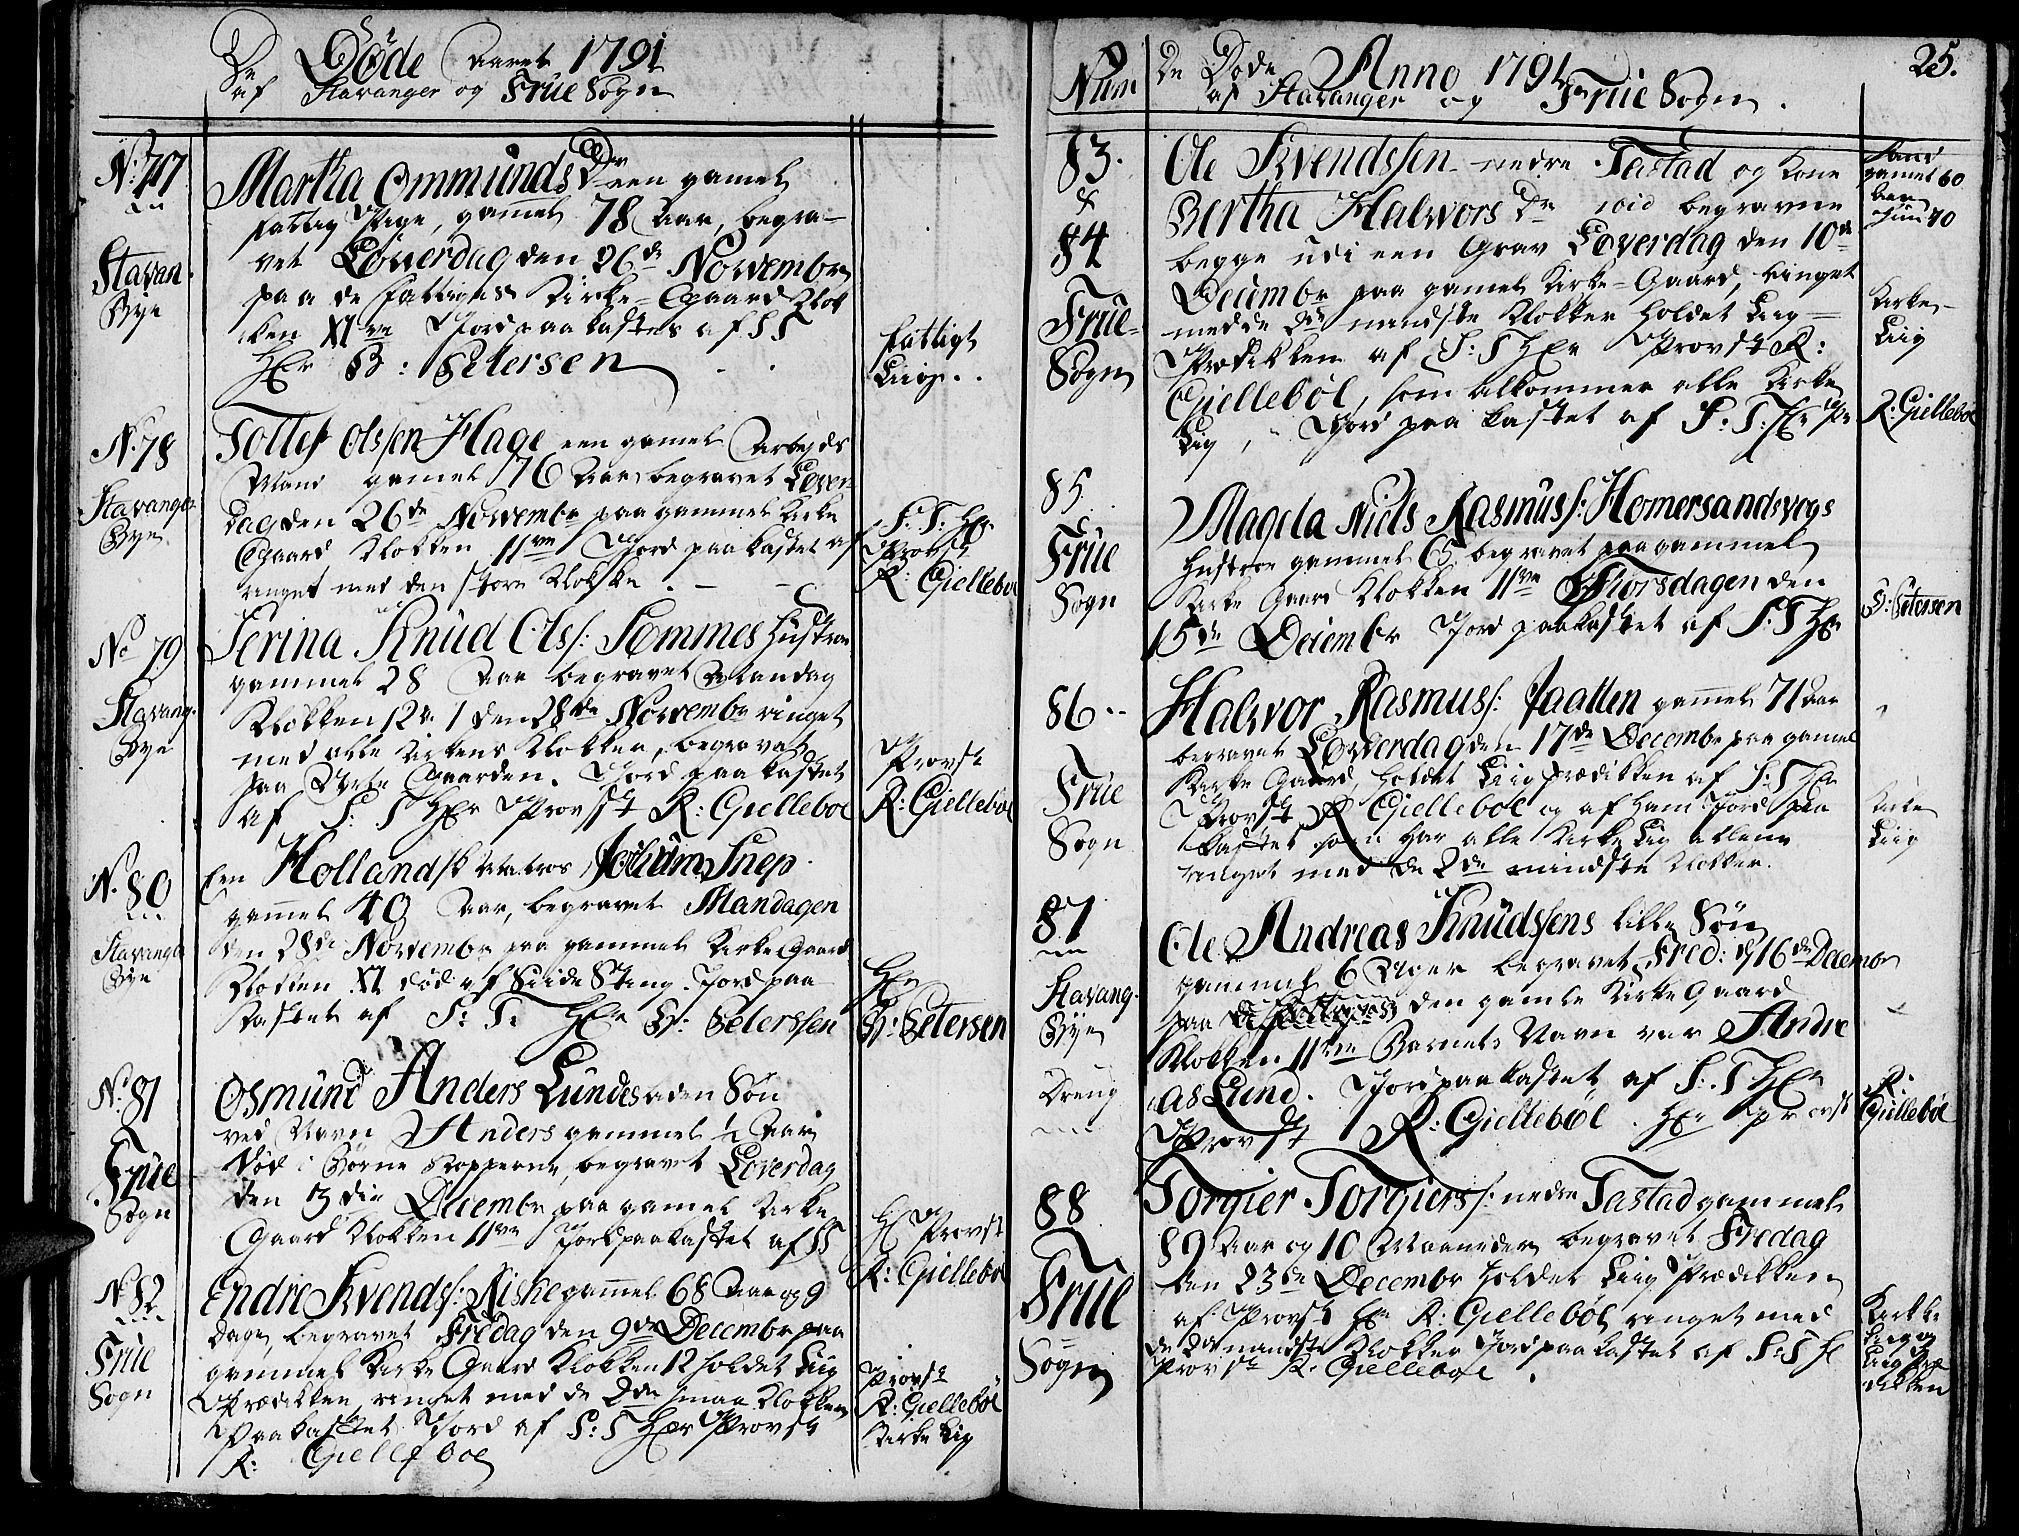 De Döde Aaret 1791
af Stavanger og Früe Sogn
N: 77
Stavan
Bye
Martha Ommunds Dr een gamel
fattig Pige, gamel 78 Aar, begra-
vet Löverdag den 26de Novembr
paa de fattiges Kirke-Gaard Klok
ken XIve Jord paa kastes af S S
Hr B: Petersen
fattigt
Liig
N. 78
Stavanger
Bye
Tollef Olssen Hage een gamel Arbejds
Mand gamel 76 Aar begravet Löver
dag den 26de Novembr paa gammel Kirke
Gaard Klokken 11ve Jord paa kastet af
ringet med den store Klokke
S. T. Hr
Provst
R: Giellebol
No 79
Stavang.
Bye
Serina Knud Olss: Sømmes Hustroe
gammel 28 Aar begravet Mandag
Klokken 12 1 den 28de Novembr ringet
med alle Kirkens Klokker, begravet
paa Kirke Gaarden. Jord paa kastet
af S: T Hr Provst R: Giellebol
Provst
R: Giellebol
N. 80
Stavanger
Bye
Een Hollandsk Matros Snep
gammel 40 Aar, begravet Mandagen
den 28de Novembr paa gammel Kirke Gaard
Klokken XI død af Siide Sting. Jord paa
kastet af S: T. Hr B: Peterssen
Hr
B: Petersen
N: 81
Früe
Sogn
Osmund Anders Lundes Søn
ved Navn Anders gammel ½ Aar
død i Börne Kopperne, begravet Löverdag
den 3die Decembr paa gamel Kirke
Gaard Klokken 11ve Jord paakastet af SS
H Provst
R: Giellebol
N. 82
Früe
Sogn
Endre Svends: Riske gamel 68 Aar og 9
Dage, begravet Fredag den 9de Decembr paa
gammel Kirke Gaard Klokken 12 holdet Liig
Prædikken, ringet med de 2de smaa Klokker
Paakastet Jord af S: T Hr Provst
R: Giellebol
Provst
R: Giellebol
Kirke Liig
Num
De Döde Anno 1791
af Stavanger og Früe Sogn.
25.
83.
&
84
Früe-
Sogn
Ole Svendssen nedre Tastad og Kone
Bertha Halvors Dr begravne
begge udi een Grav Löverdag den 10de
Decembr paa gamel Kirke-Gaard, ringet
med de 2de mindste Klokker holdet Liig-
Prædikken af S: T Hr Provst R:
Giellebøl, som tilkommer alle Kirke
Liig, Jord paa kastet af S: T: Hr Pr
gamel 60
70
Kirke-
Liig
R: Giellebol
85
Früe
Sogn
Magela Niels Rasmuss: Homersandsvogs
Hustroe gammel 65 begravet paa gammel
Kirke Gaard Klokken 11ve Thorsdagen den
15de Decembr Jord paakastet af S: T Hr
B: Petersen
86
Früe
Sogn
Halvor Rasmuss: Jaatten gamel 71 Aar
begravet Löverdag den 17de Decembr paa gamel
Kirke Gaard, holdet Liig prædikken af S: T Hr
Provst R Giellebol og af ham Jord paa
kastet som har alle Kirke Liig allene
ringet med de 2de mindste Klokker.
Kirke
Liig
87
Stavang.
Bye
Dreng
Ole Andreas Knüdssens lille Søn
gammel 6 Uger begravet Fred: d 16de Decembr
paa den gamle Kirke Gaard
Klokken 11ve Barnets Navn var Andre
as Lund. Jord paa kastet af S: T Hr
Provst R: Giellebøl. Hr Provst
R:
Giellebøl
88
Früe
Sogn
Torgier Torgierss: nedre Tastad gammel
89 Aar og 10 Maaneder begravet Fredag
den 23de Decembr holdet Liig Prædikken
af Provst Hr R: Giellebøl ringet med
de 2de mindste Klokker Jord paa kastet af S: T H
Provst R: Giellebol.
Kirke
Liig og
Liig Præ
dikken